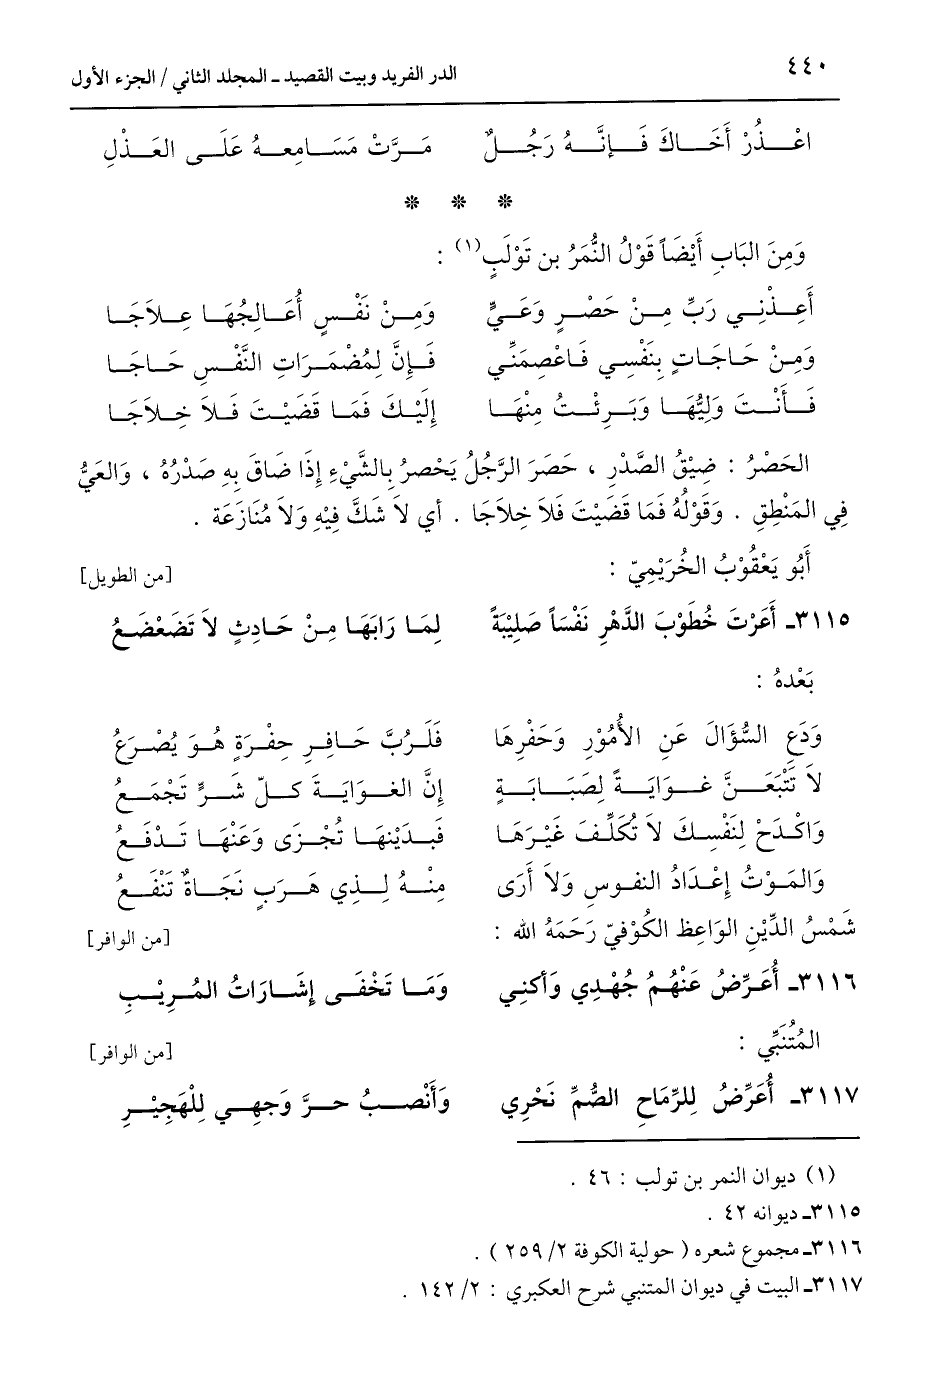 ٤٤٠ الدر الفريد وبيت القصيد ـ المجلد الثاني / الجزء الأول
اعْذُرْ أَخَاكَ فَإِنَّهُ رَجُلٌ مَرَّتْ مَسَامِعهُ عَلَى العَذْلِ
* * *
وَمِنَ البَابِ أَيْضَاً قَوْلُ النُّمَرُ بن تَوْلَبٍ(١) :
أَعِذْنِي رَبِّ مِنْ حَصْرٍ وَعَيٍّ وَمِنْ نَفْسٍ أُعَالِجُهَا عِلاَجَا
وَمِنْ حَاجَاتٍ بِنَفْسِي فَاعْصِمَنِّي فَإِنَّ لِمُضْمَرَاتِ النَّفْسِ حَاجَا
فَأَنْتَ وَلِيُّهَا وَبَرِئْتُ مِنْهَا إِلَيْكَ فَمَا قَضَيْتَ فَلاَ خِلاَجَا
الحَصْرُ : ضِيْقُ الصَّدْرِ ، حَصَرَ الرَّجُلُ يَحْصرُ بِالشَّيْءِ إِذَا ضَاقَ بِهِ صَدْرُهُ ، وَالعَيُّ
فِي المَنْطِقِ . وَقَوْلُهُ فَمَا قَضَيْتَ فَلاَ خِلاَجَا . أي لاَ شَكَّ فِيْهِ وَلاَ مُنَازَعَة .
أَبُو يَعْقُوْبُ الخُرَيْمِيّ : [من الطويل]
٣١١٥ـ أَعَرْتَ خُطُوْبَ الدَّهْرِ نَفْسَاً صَلِيْبَةً لِمَا رَابَهَا مِنْ حَادِثٍ لاَ تَضَعْضَعُ
بَعْدهُ :
وَدَعِ السُّؤَالَ عَنِ الأُمُوْرِ وَحَفْرِهَا فَلَرُبَّ حَافِرِ حِفْرَةٍ هُوَ يُصْرَعُ
لاَ تَتْبَعَنَّ غَوَايَةً لِصَبَابَةٍ إِنَّ الغَوَايَةَ كلّ شَرٍّ تَجْمَعُ
وَاكْدَحْ لِنَفْسِكَ لاَ تُكَلِّفَ غَيْرَهَا فَبِدَيْنِهَا تُجْزَى وَعَنْهَا تَدْفَعُ
وَالمَوْتُ إِعْدَادُ النفوسِ وَلاَ أَرَى مِنْهُ لِذِي هَرَبٍ نَجَاةٌ تَنْفَعُ
شَمْسُ الدِّيْنِ الوَاعِظ الكُوْفِيّ رَحَمَهُ الله : [من الوافر]
٣١١٦ـ أُعَرِّضُ عَنْهُمُ جُهْدِي وَأكنِي وَمَا تَخْفَى إِشَارَاتُ المُرِيْبِ
المُتُنَبِّي : [من الوافر]
٣١١٧ـ أُعَرِّضُ لِلرِّمَاحِ الصُّمِّ نَحْرِي وَأَنْصبُ حرَّ وَجهِي لِلْهَجِيْرِ
(١) ديوان النمر بن تولب : ٤٦ .
٣١١٥ـ ديوانه ٤٢ .
٣١١٦ـ مجموع شعره ( حولية الكوفة ٢/ ٢٥٩ ) .
٣١١٧ـ البيت في ديوان المتنبي شرح العكبري : ٢/ ١٤٢ .